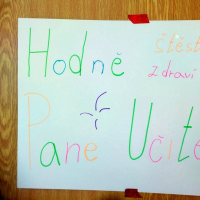 Hodně
štěst
zdraví
Pane Učite